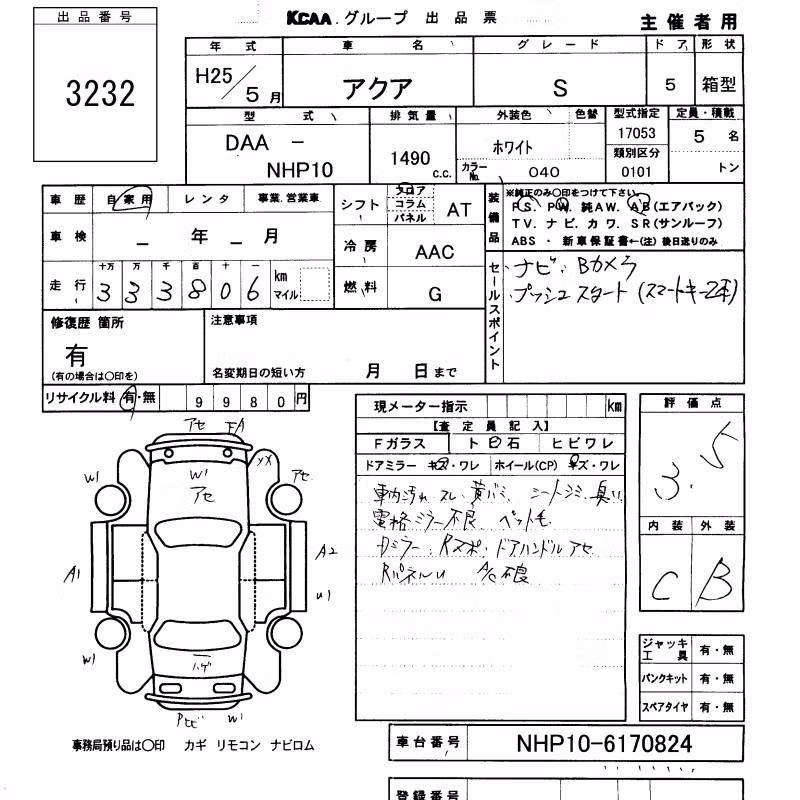 出品番号
3232
KCAA.グループ 出品票
主催者用
年式 車名 グレード ドア 形状
H25/5月 アクア S 5 箱型
型式 排気量 外装色 色替 型式指定 定員・積載
DAA -
NHP10
1490 c.c.
ホワイト
カラーNo. 040
17053
類別区分
0101
5 名
トン
車歴 自家用 レンタ 事業.営業車
車検 _ 年 _ 月
走行 十万 万 千 百 十 一
333806 km マイル
シフト フロア コラム パネル AT
冷房 AAC
燃料 G
装備品
※純正のみ〇印をつけて下さい。
PS. PW. 純AW. AB(エアバック)
TV. ナビ. カワ. SR(サンルーフ)
ABS ・ 新車保証書←(注) 後日送りのみ
セールスポイント
・ナビ・Bカメラ
・プッシュスタート(スマートキー2本)
修復歴 箇所
有
(有の場合は〇印を)
注意事項
名変期日の短い方 月 日まで
リサイクル料 有・無 9980円
現メーター指示 km
【査定員記入】
Fガラス ト石 ヒビワレ
ドアミラー キズ・ワレ ホイール(CP) キズ・ワレ
車内汚れ スレ 黄バミ シートシミ 臭い
電格ミラー不良 ペット毛
Dミラー・Rスポ・ドアハンドルアセ
RパネルU A/C不良
評価点
3.5
内装 外装
C B
アセ
W1
アセ
W1
アセ
A1
A2
U1
W1
W1
ハゲ
W1
ジャッキ 工具 有・無
パンクキット 有・無
スペアタイヤ 有・無
事務局預り品は〇印 カギ リモコン ナビロム
車台番号 NHP10-6170824
登録番号